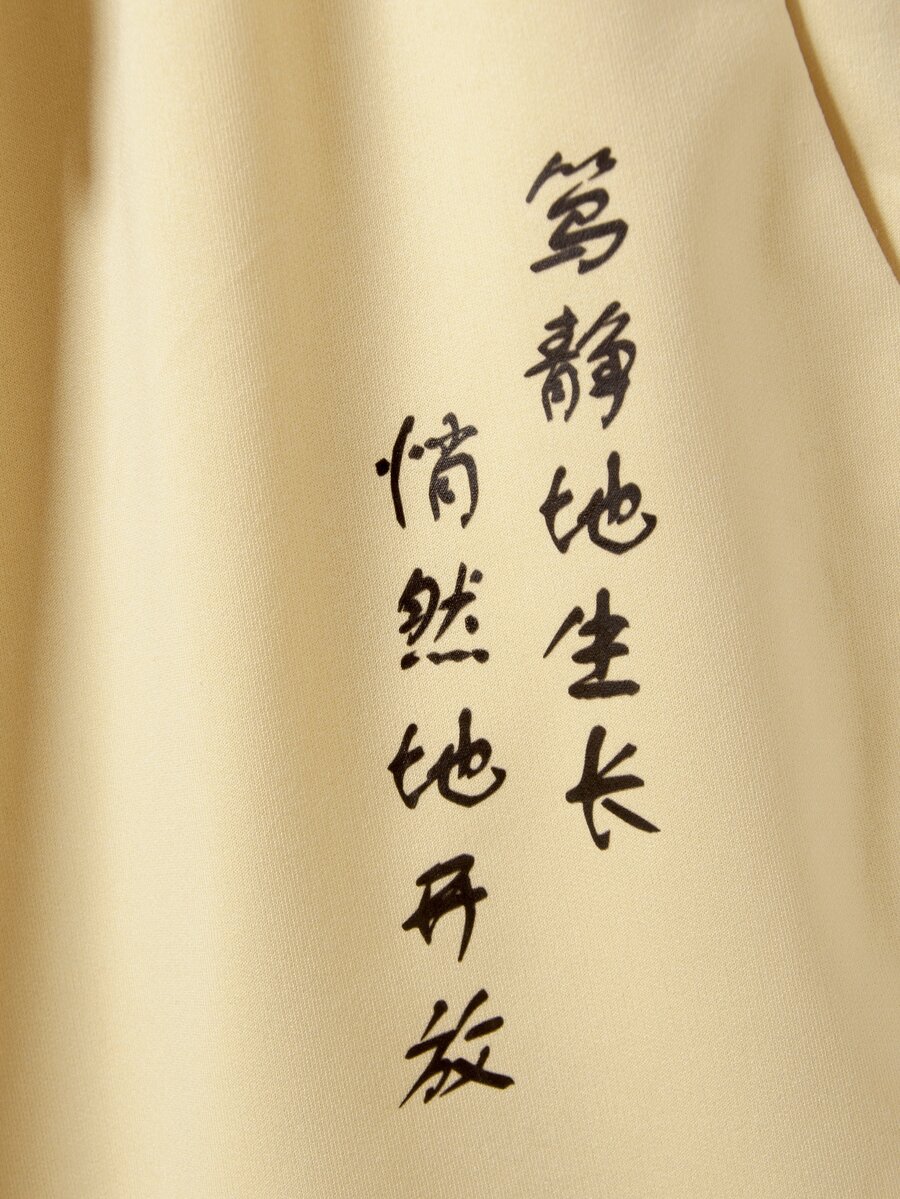 笃静地生长
悄然地开放